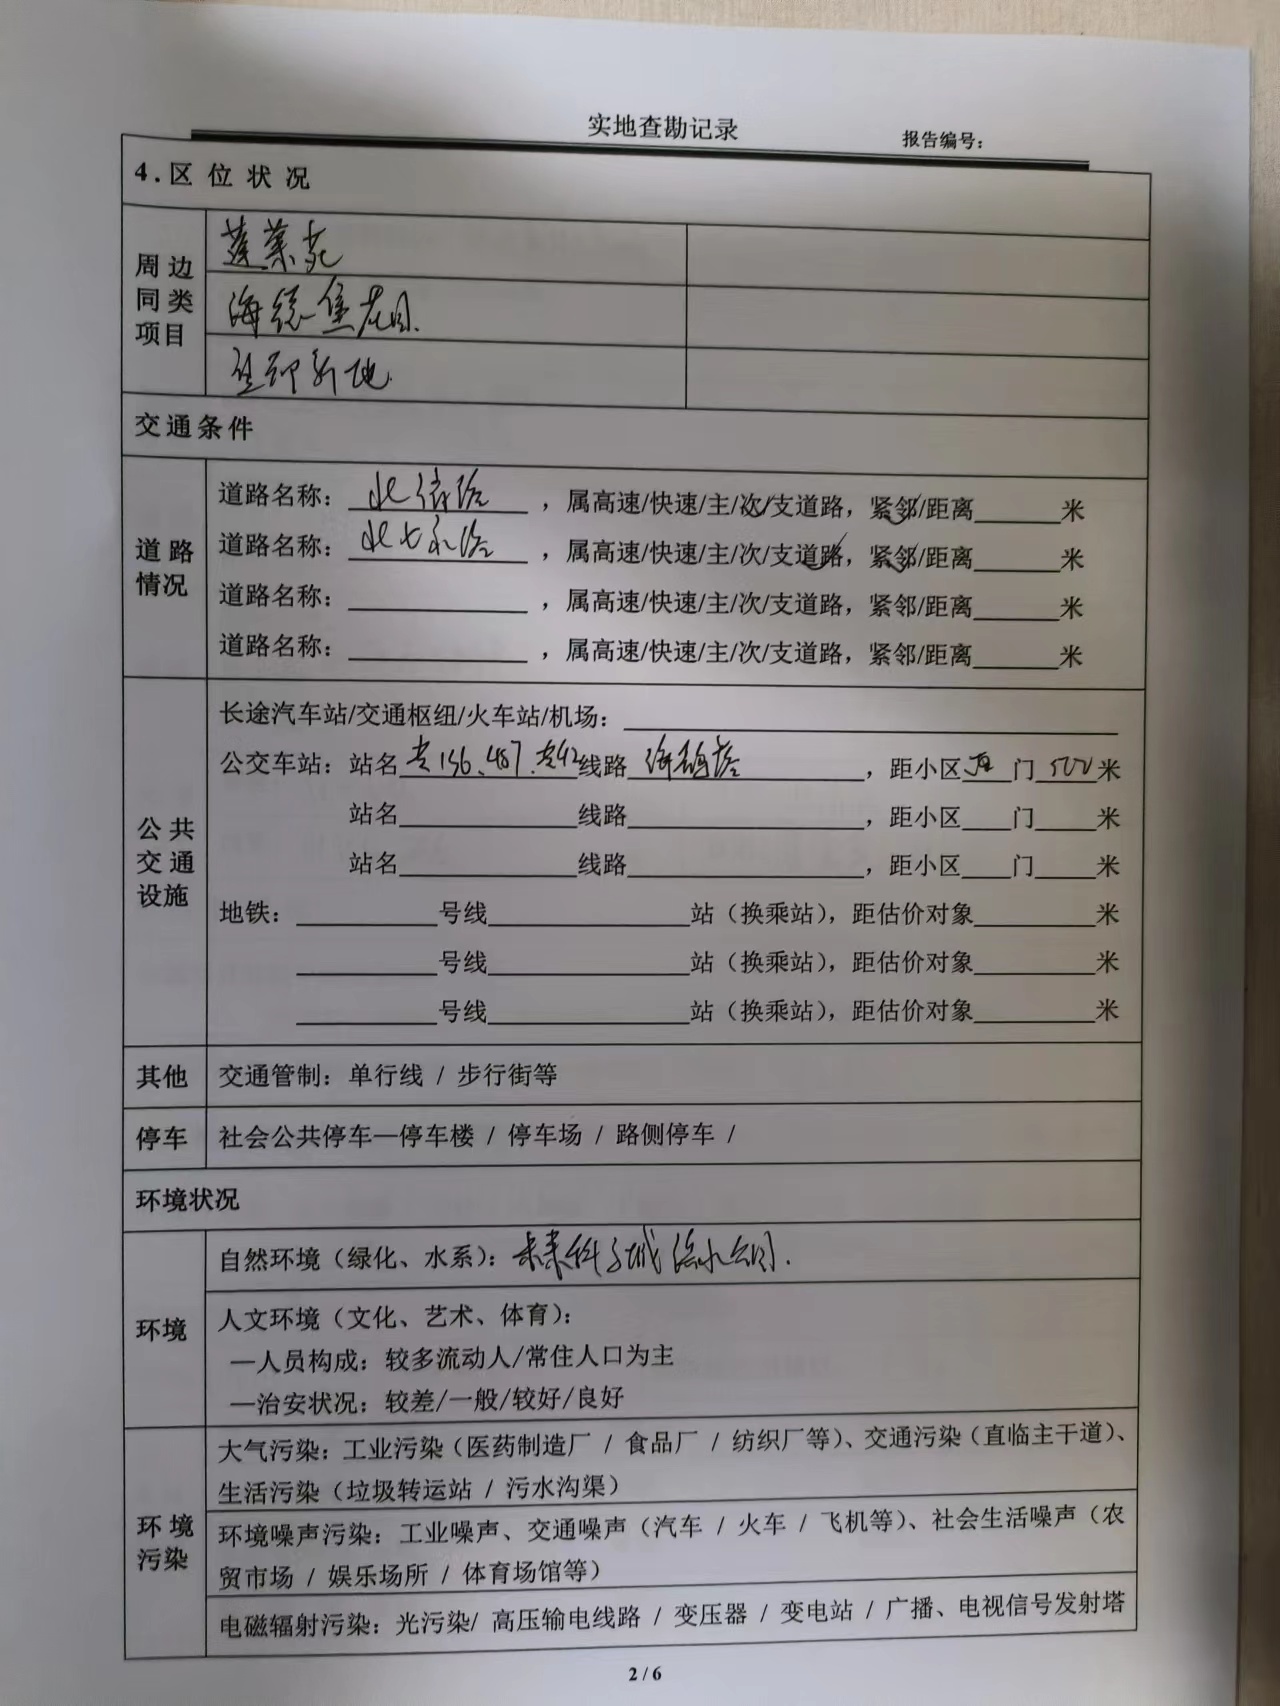 实地查勘记录
报告编号：
4.区位状况
周边同类项目
蓬莱苑
海德堡花园
新地
交通条件
道路情况
道路名称：，属高速/快速/主/次/支道路，紧邻/距离______米
道路名称：北七家路，属高速/快速/主/次/支道路，紧邻/距离______米
道路名称：____________，属高速/快速/主/次/支道路，紧邻/距离______米
道路名称：____________，属高速/快速/主/次/支道路，紧邻/距离______米
公共交通设施
长途汽车站/交通枢纽/火车站/机场：____________
公交车站：站名 专156、487、专42 线路，距小区 西 门 500 米
站名____________线路____________，距小区____门____米
站名____________线路____________，距小区____门____米
地铁：________号线____________站（换乘站），距估价对象________米
________号线____________站（换乘站），距估价对象________米
________号线____________站（换乘站），距估价对象________米
其他
交通管制：单行线 / 步行街等
停车
社会公共停车—停车楼 / 停车场 / 路侧停车 /
环境状况
环境
自然环境（绿化、水系）：未来科学城滨水公园.
人文环境（文化、艺术、体育）：
—人员构成：较多流动人/常住人口为主
—治安状况：较差/一般/较好/良好
环境污染
大气污染：工业污染（医药制造厂 / 食品厂 / 纺织厂等）、交通污染（直临主干道）、
生活污染（垃圾转运站 / 污水沟渠）
环境噪声污染：工业噪声、交通噪声（汽车 / 火车 / 飞机等）、社会生活噪声（农
贸市场 / 娱乐场所 / 体育场馆等）
电磁辐射污染：光污染/ 高压输电线路 / 变压器 / 变电站 / 广播、电视信号发射塔
2 / 6